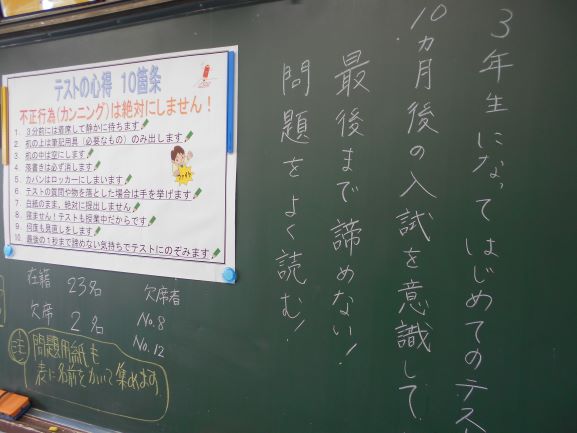 3年生になってはじめてのテス
10ヵ月後の入試を意識して
最後まで諦めない！
問題をよく読む！
テストの心得 10箇条
不正行為(カンニング)は絶対にしません！
1. 3分前には着席して静かに待ちます
2. 机の上は筆記用具（必要なもの）のみ出します
3. 机の中は空にします
4. 落書きは必ず消します
5. カバンはロッカーにしまいます
6. テストの質問や物を落とした場合は手を挙げます
7. 白紙のまま、絶対に提出しません
8. 寝ません！テストも授業中だからです
9. 何度も見直しをします
10. 最後の1秒まで諦めない気持ちでテストにのぞみます
ファイト
在籍 23名
欠席 2名
欠席者
No.8
No.12
注 問題用紙も
表に名前をかいて集めます